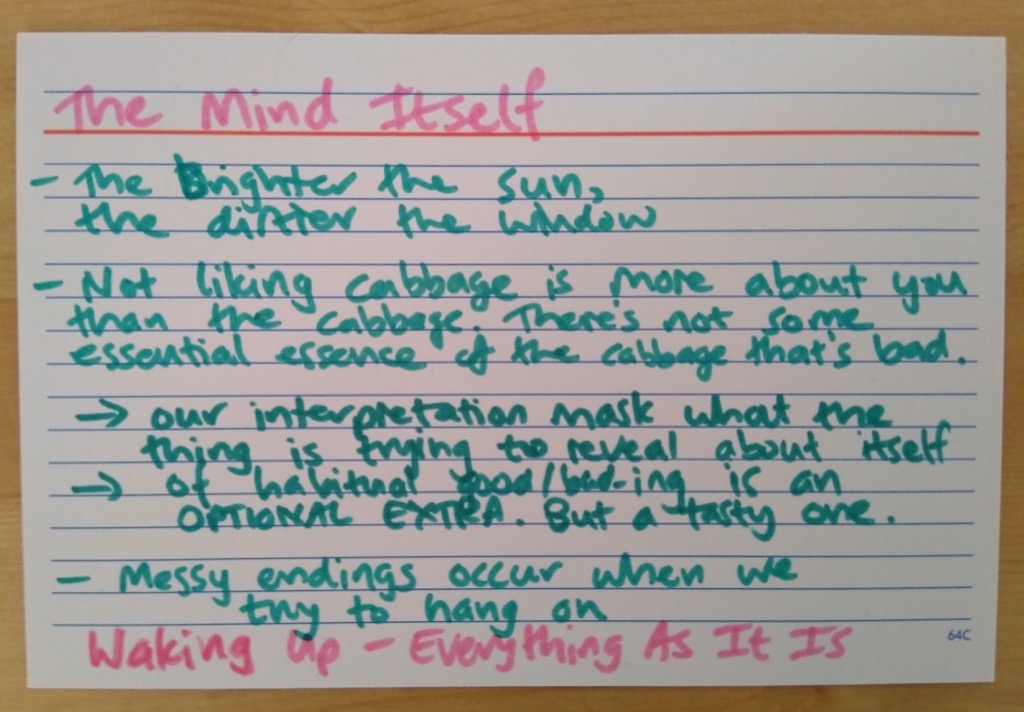 The Mind Itself
- The Brighter the sun,
the dirtier the window
- Not liking cabbage is more about you
than the cabbage. There's not some
essential essence of the cabbage that's bad.
→ our interpretation mask what the
thing is trying to reveal about itself
→ of habitual good/bad-ing is an
OPTIONAL EXTRA. But a tasty one.
- Messy endings occur when we
try to hang on
Waking Up - Everything As It Is
64C